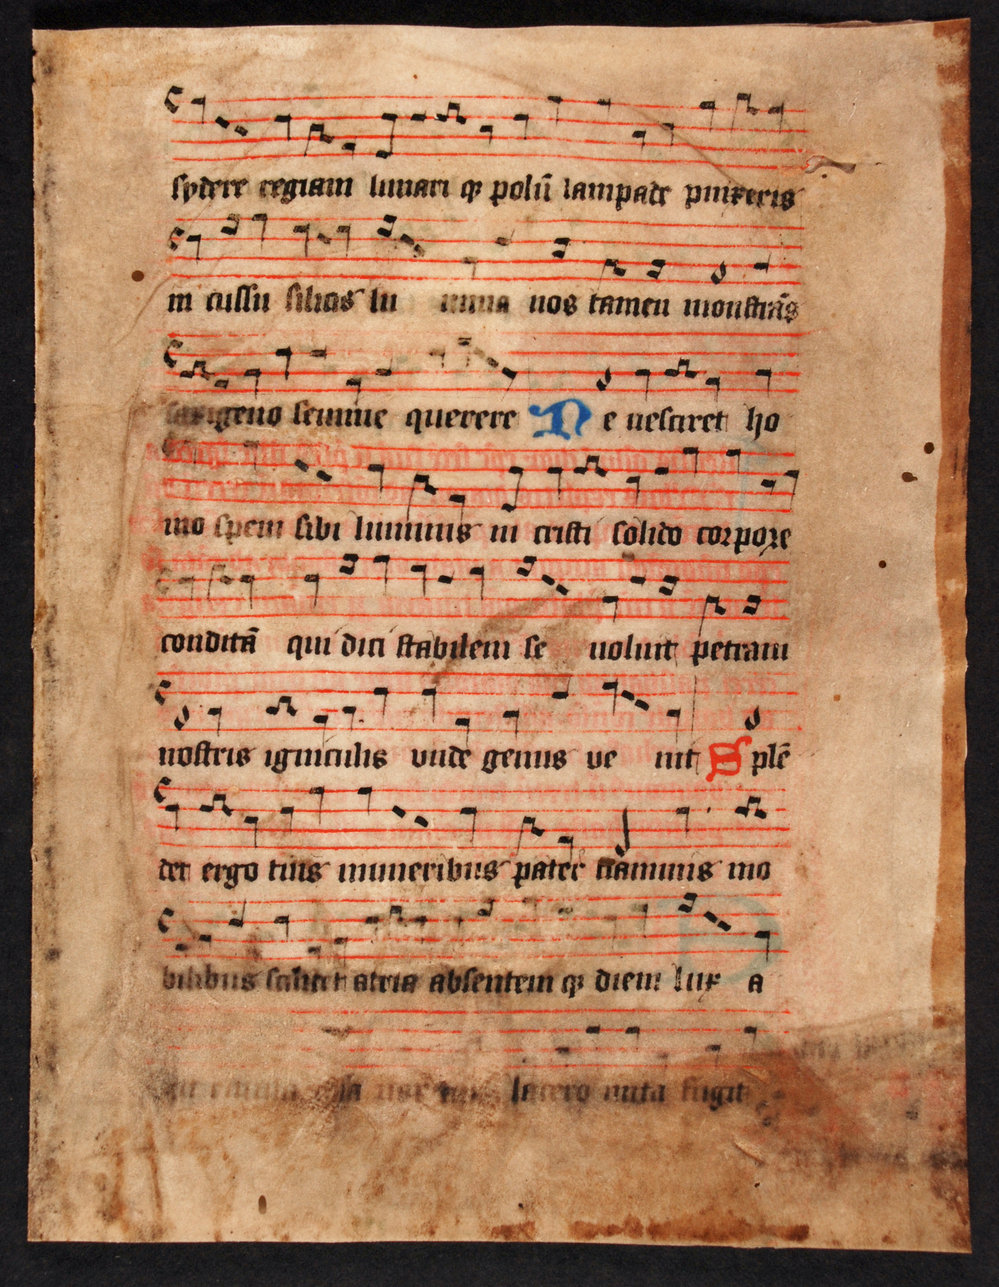 sydere regiam lunari qz polū lampade pinxeris
in cussu silicis lu mina nos tamen monstrās
saxigeno semine querere Ne nesciret ho
mo spem sibi luminis in cristi solido corpore
conditā qui dici stabilem se voluit petram
nostris igniculis unde genus ve nit Splē
det ergo tuis muneribus pater flammis mo
bilibus scilicet atria absentem qz diem lux a
lacero victa fugit